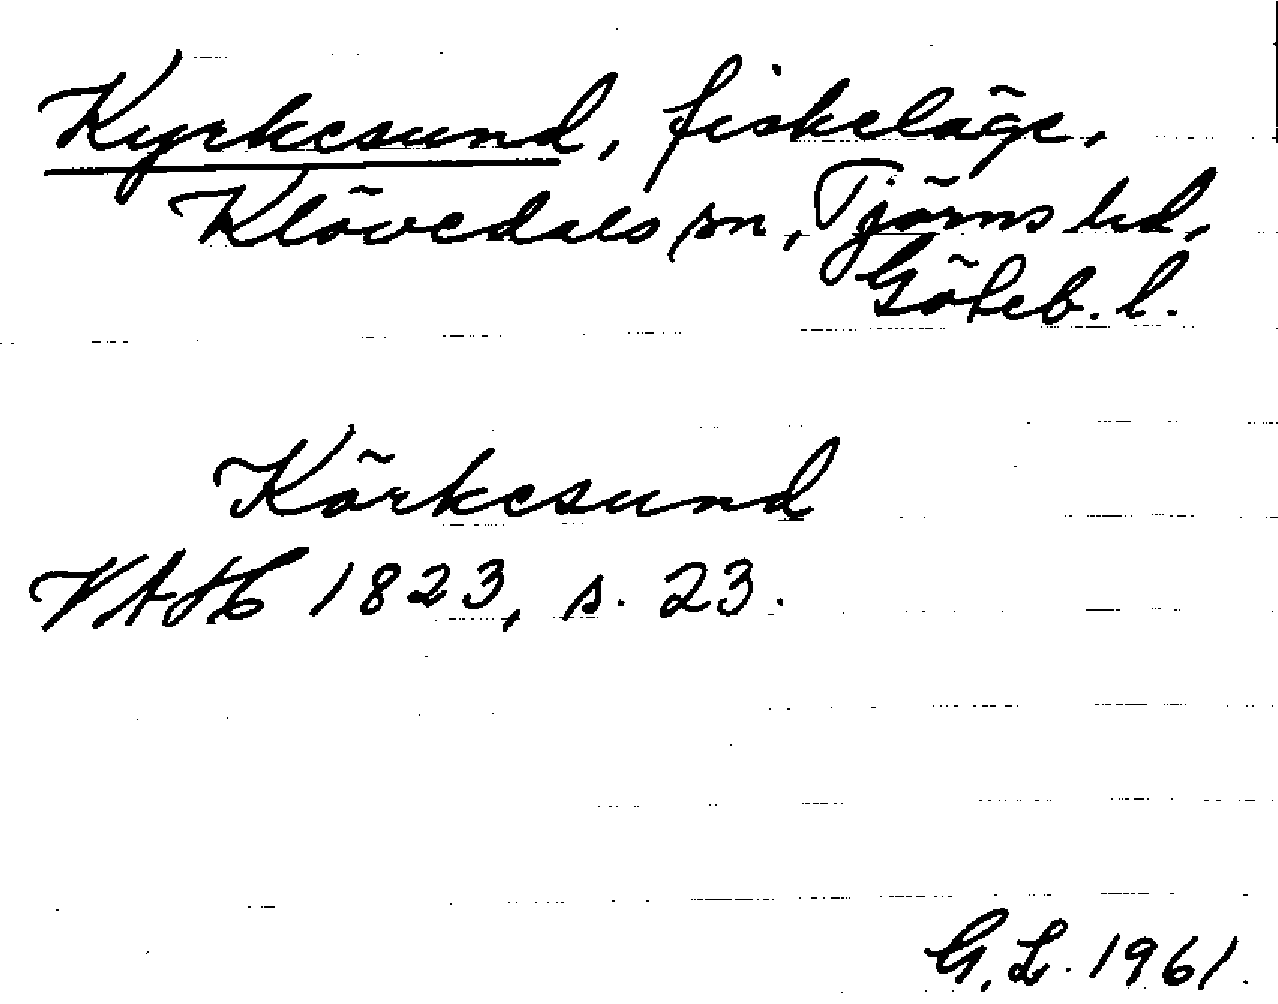 Kyrkesund, fiskeläge,
Klövedals sn, Tjörns hd,
Göteb. l.
Körkesund
VAH 1823, s. 23.
G. L. 1961.